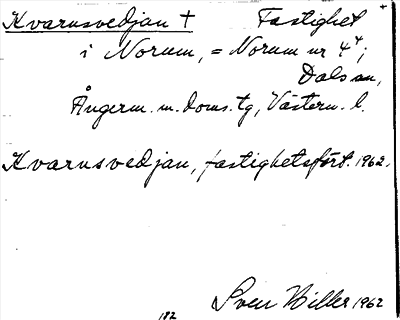 Kvarnsvedjan † Fastighet
i Norum, = Norum nr 4⁴;
Dals sn,
Ångerm. m. doms. tg, Västern. l.
Kvarnsvedjan, fastighetsfört. 1962.
Sven Hiller 1962
182